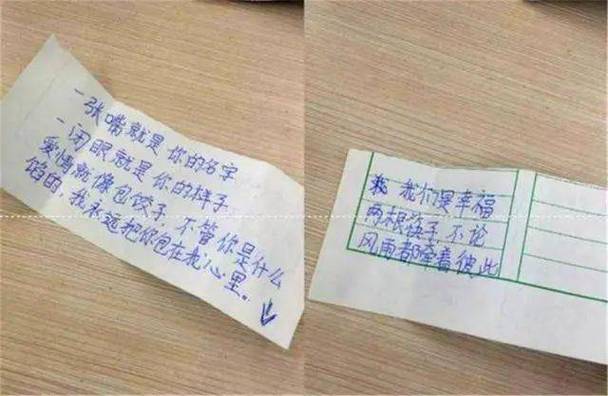 一张嘴就是你的名字
一闭眼就是你的样子
爱情就像包饺子,不管你是什么
馅的,我永远把你包在我心里。
我们是幸福
两根筷子,不论
风雨都牵着彼此